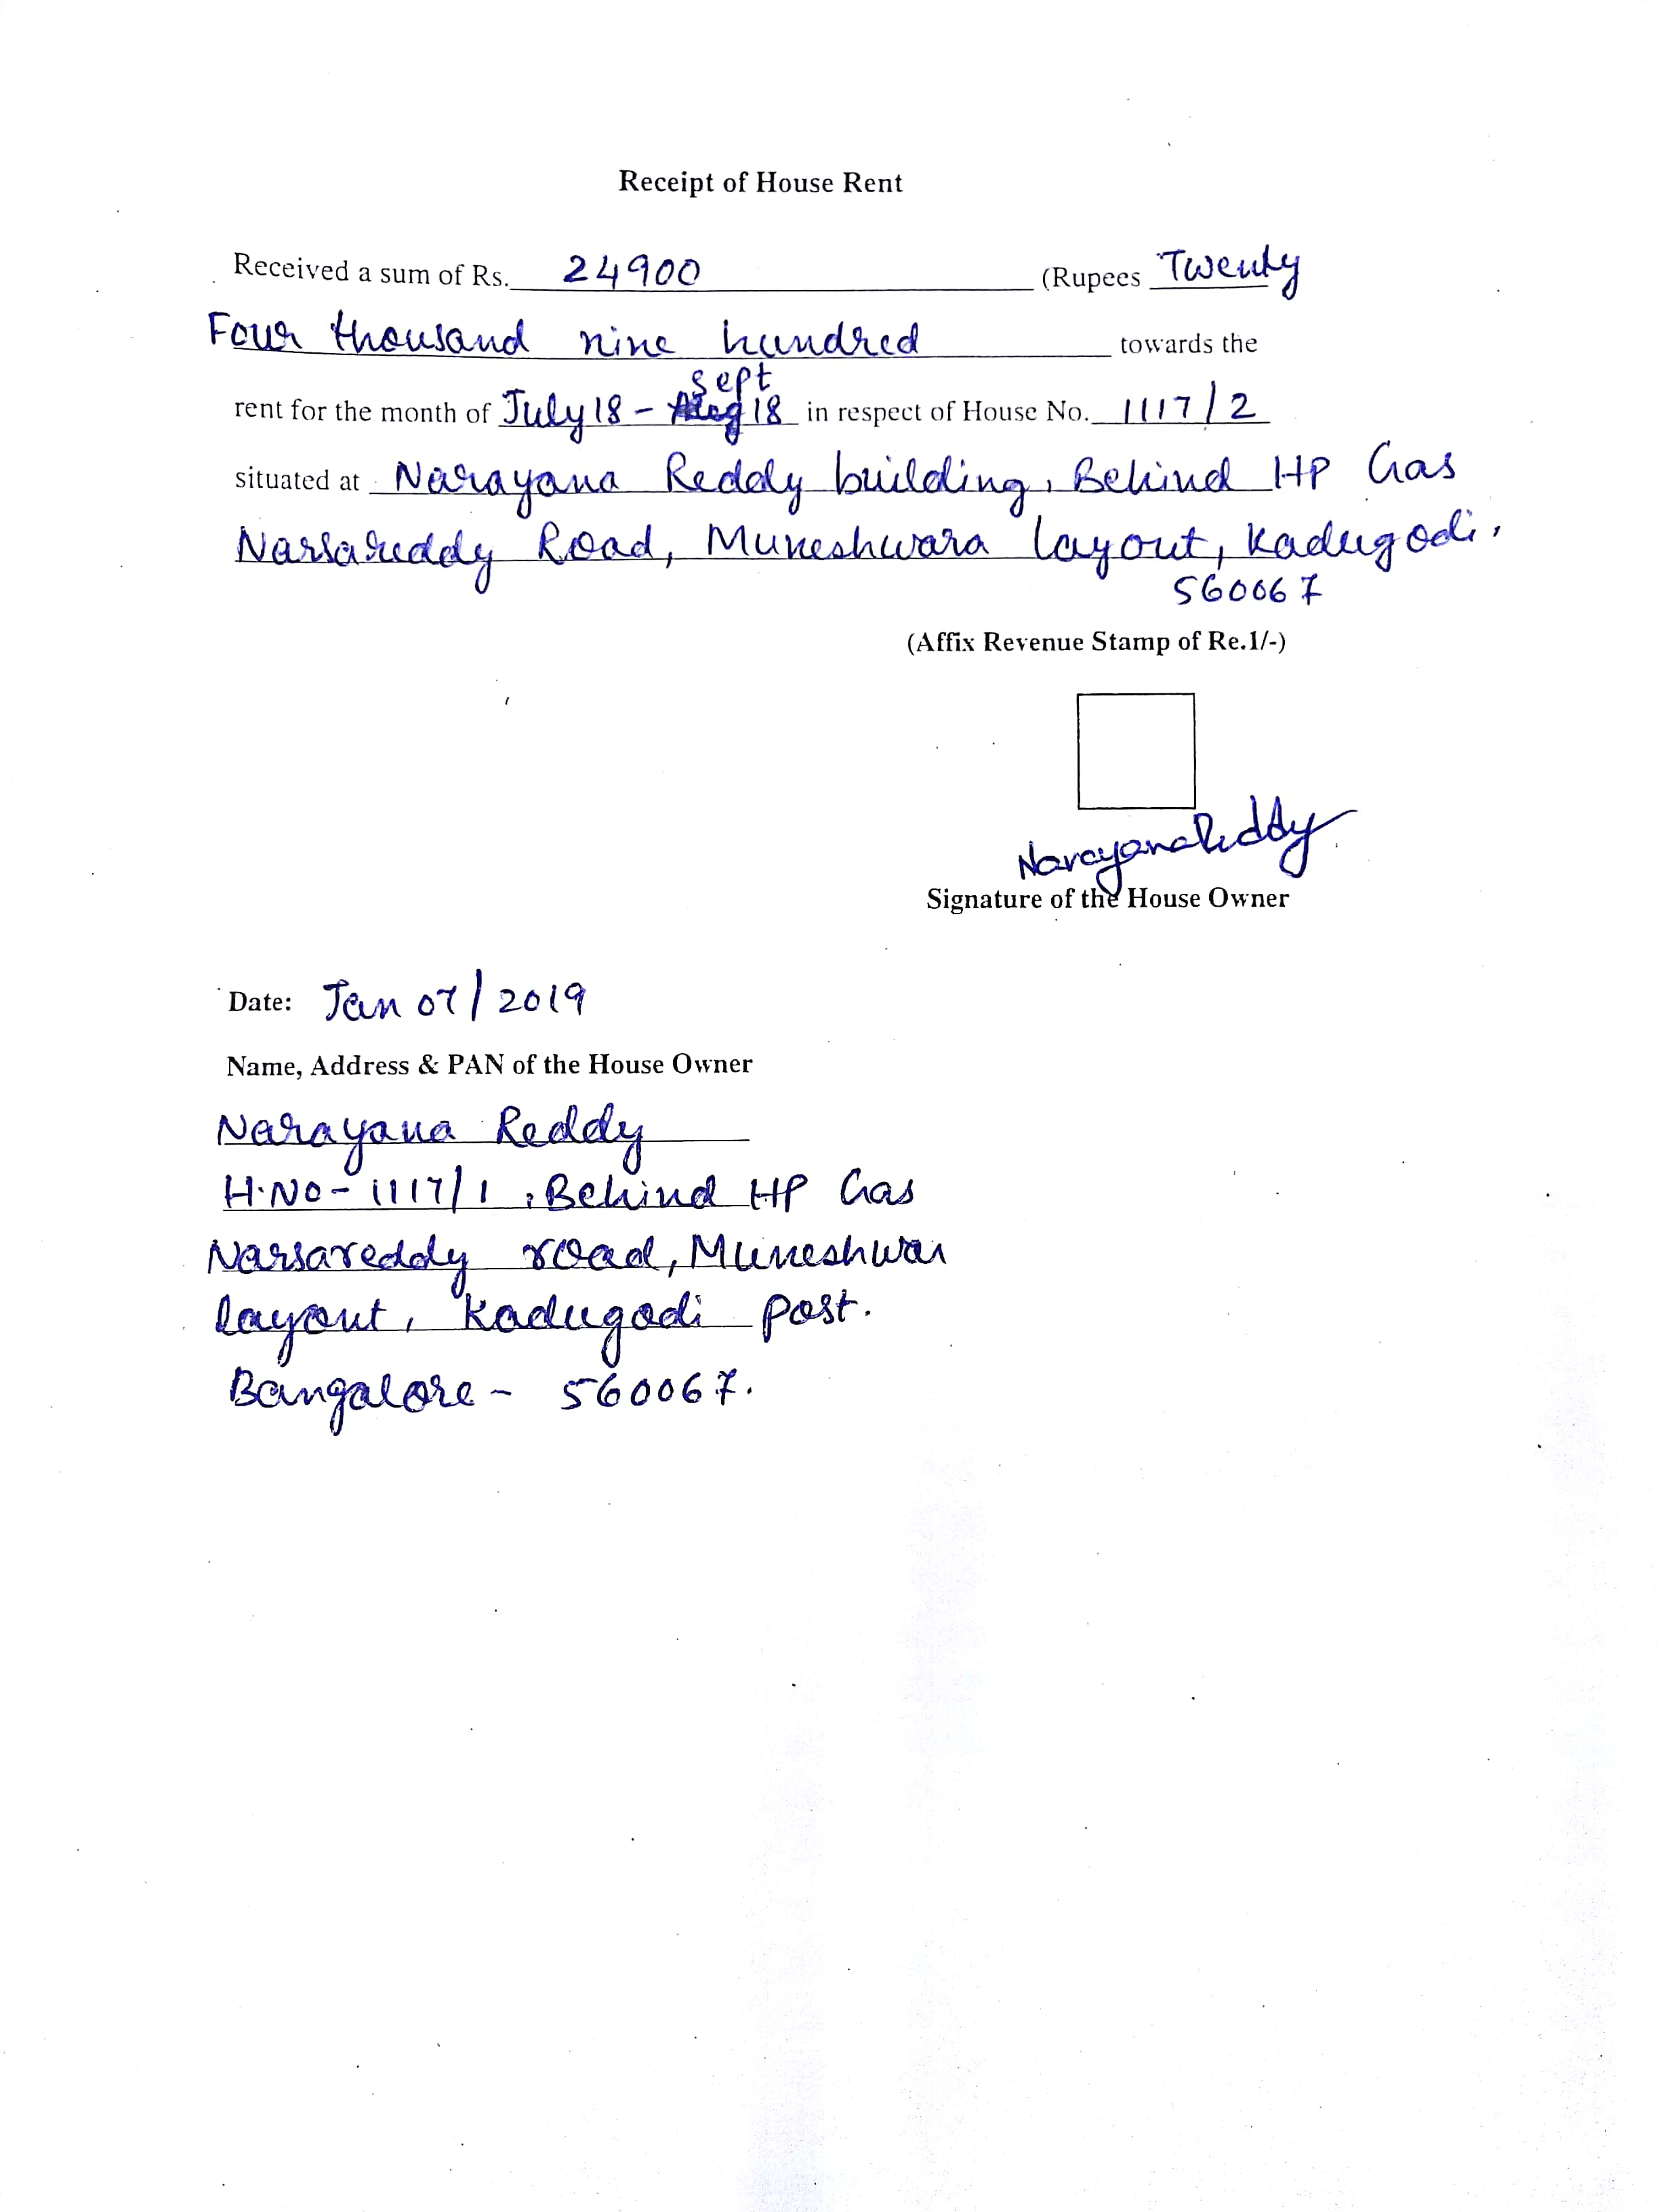 Receipt of House Rent
Received a sum of Rs. 24900 (Rupees Twenty
Four thousand nine hundred towards the
sept
rent for the month of July 18 - Aug 18 in respect of House No. 1117/2
situated at Narayana Reddy building, Behind HP Gas
Narsareddy Road, Muneshwara layout, Kadugodi,
560067
(Affix Revenue Stamp of Re.1/-)
NarayanaReddy
Signature of the House Owner
Date: Jan 07/2019
Name, Address & PAN of the House Owner
Narayana Reddy
H.NO- 1117/1, Behind HP Gas
Narsareddy road, Muneshwar
layout, Kadugodi post.
Bangalore - 560067.